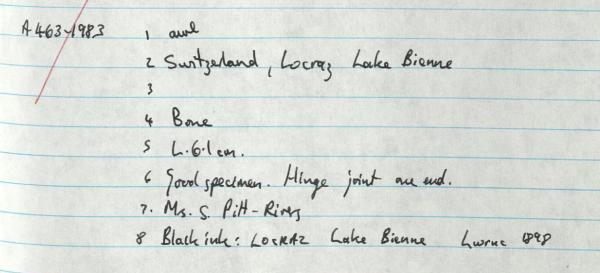 A463-1983 1 awl
2 Switzerland, Locraz Lake Bienne
3
4 Bone
5 L.6.1cm.
6 Good specimen. Hinge joint one end.
7. Ms. S Pitt-Rivers
8 Black ink: LOCRAZ Lake Bienne 1898